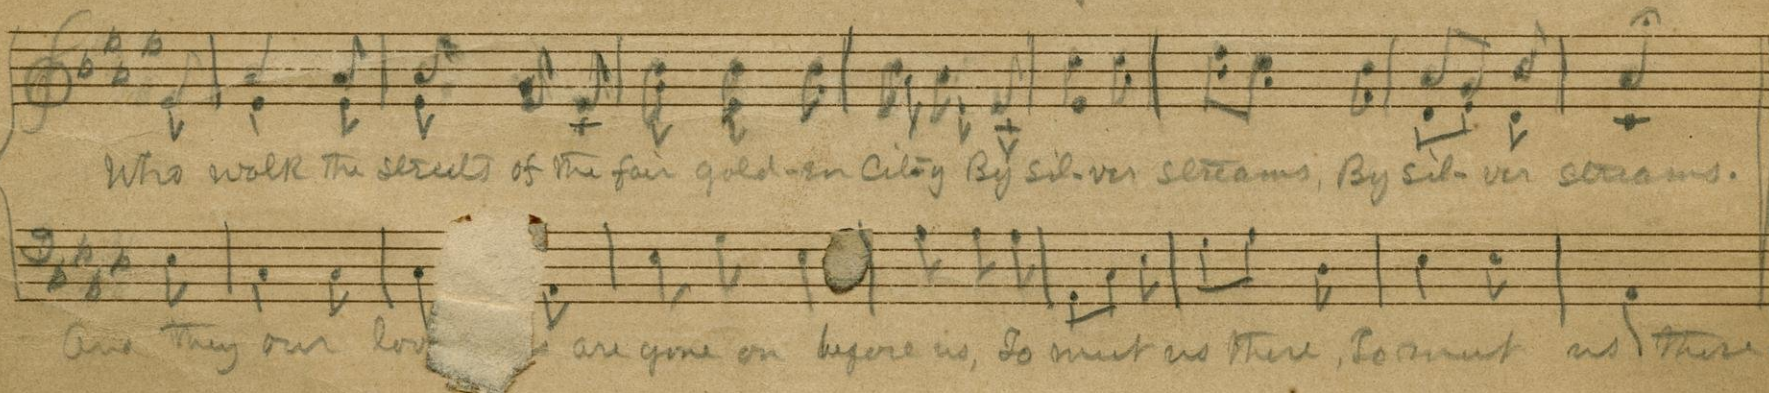 Who walk the streets of the fair gold-en City By sil-ver streams, By sil-ver streams.
And they our are gone on before us, To meet us there, To meet us there